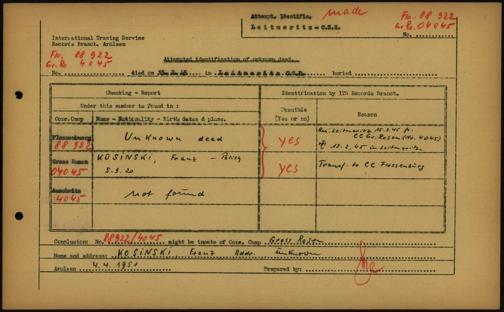 Attempt. Identific. made
Leitmeritz-C.S.R.
Fn. 88 922
Gr.Ro. 04045
No.
International Tracing Service
Records Branch, Arolsen
Fn. 88 922
Gr.Ro. 4045
Attempted identification of unknown dead.
No. died on in Leitmeritz C.S.R. buried
Checking - Report
Identification by ITS Records Branch.
Under this number is found in:
Possible (Yes or no)
Reason
Conc. Camp
Name - Nationality - Birth dates & place.
Flossenburg
88 922
Unknown dead
yes
Gross Rosen
04045
KOSINSKI, Franz - Polish
5.9.20
yes
Transf. to CC Flossenbürg
Auschwitz
4045
not found
Conclusion: No. 88922/4045 might be inmate of Conc. Camp Gross Rosen
Name and address: KOSINSKI, Franz Addr. unknown
Arolsen 4.4.1951 Prepared by: